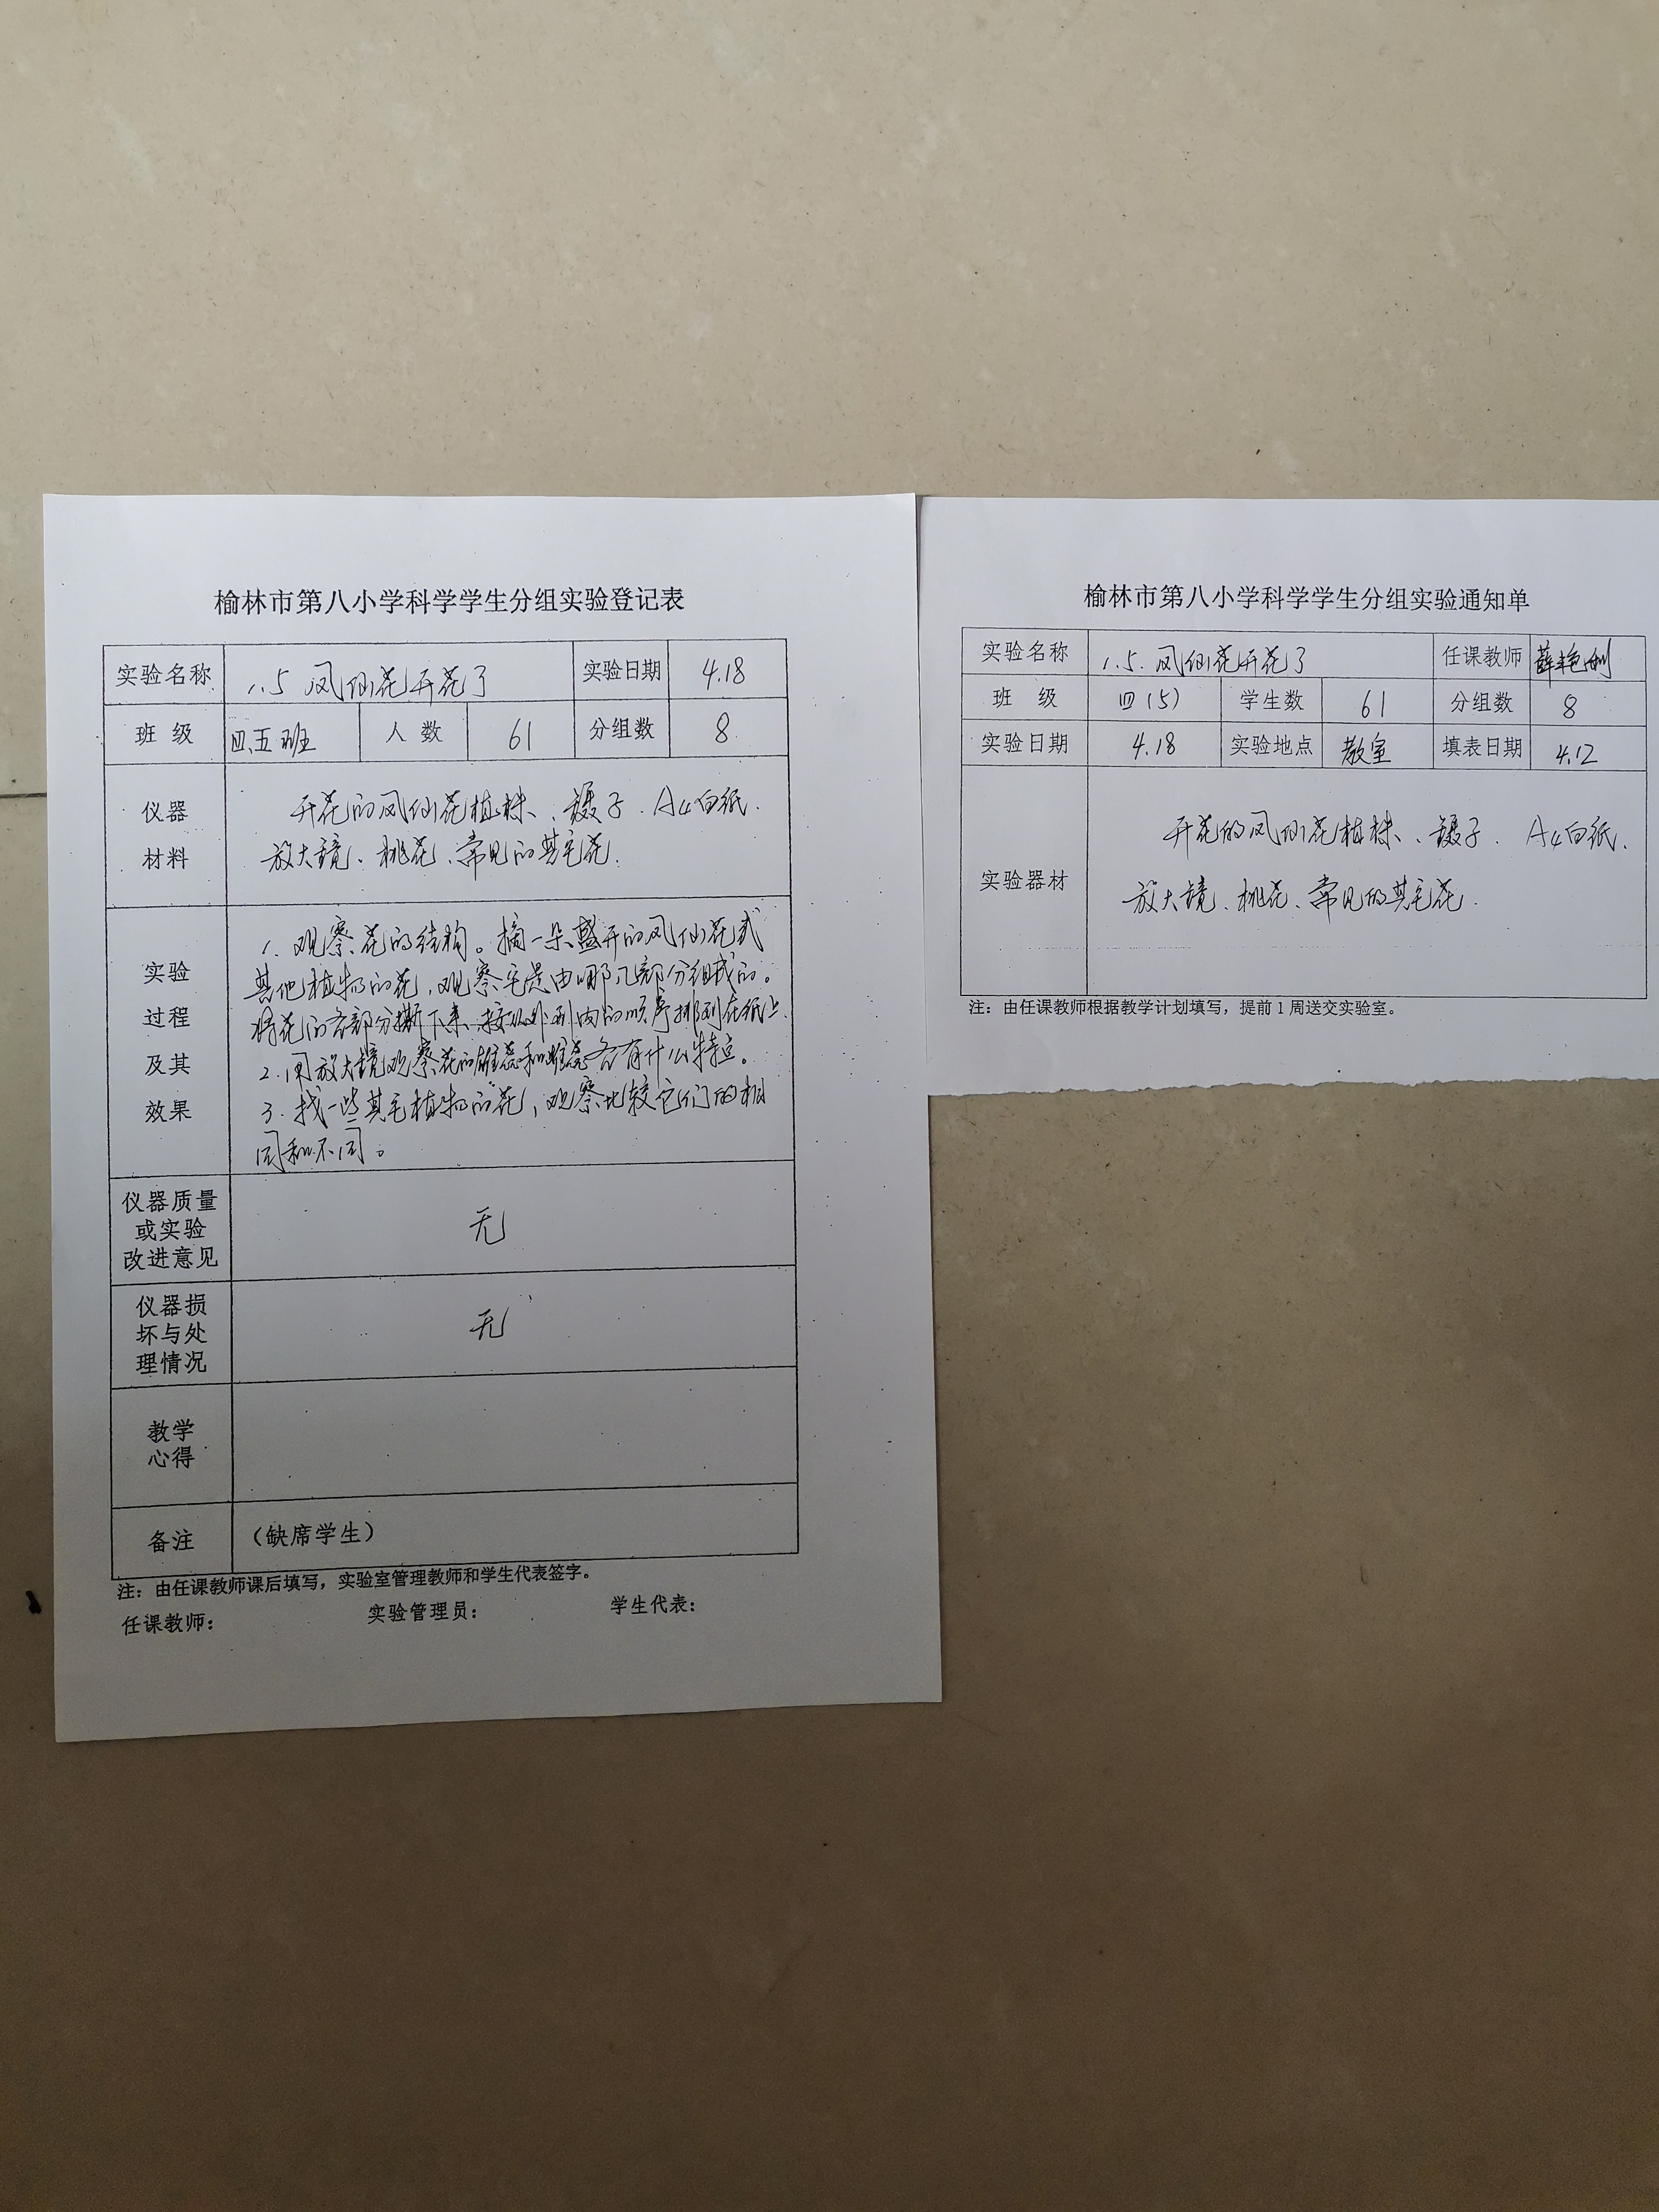 榆林市第八小学科学学生分组实验登记表
实验名称 1.5 凤仙花开花了 实验日期 4.18
班 级 四.五班 人 数 61 分组数 8
仪器
材料
开花的凤仙花植株、镊子、A4白纸、
放大镜、桃花、常见的其它花.
实验
过程
及其
效果
1. 观察花的结构。摘一朵盛开的凤仙花或
其他植物的花,观察它是由哪几部分组成的。
将花的各部分撕下来、按从外到内的顺序排列在纸上.
2. 用放大镜观察花的雄蕊和雌蕊各有什么特点。
3. 找一些其它植物的花,观察比较它们的相
同和不同。
仪器质量
或实验
改进意见
无
仪器损
坏与处
理情况
无
教学
心得
备注 (缺席学生)
注:由任课教师课后填写,实验室管理教师和学生代表签字。
任课教师: 实验管理员: 学生代表:
榆林市第八小学科学学生分组实验通知单
实验名称 1.5. 凤仙花开花了 任课教师 薛艳
班 级 四(5) 学生数 61 分组数 8
实验日期 4.18 实验地点 教室 填表日期 4.12
实验器材
开花的凤仙花植株、镊子、A4白纸、
放大镜、桃花、常见的其它花.
注:由任课教师根据教学计划填写,提前1周送交实验室。